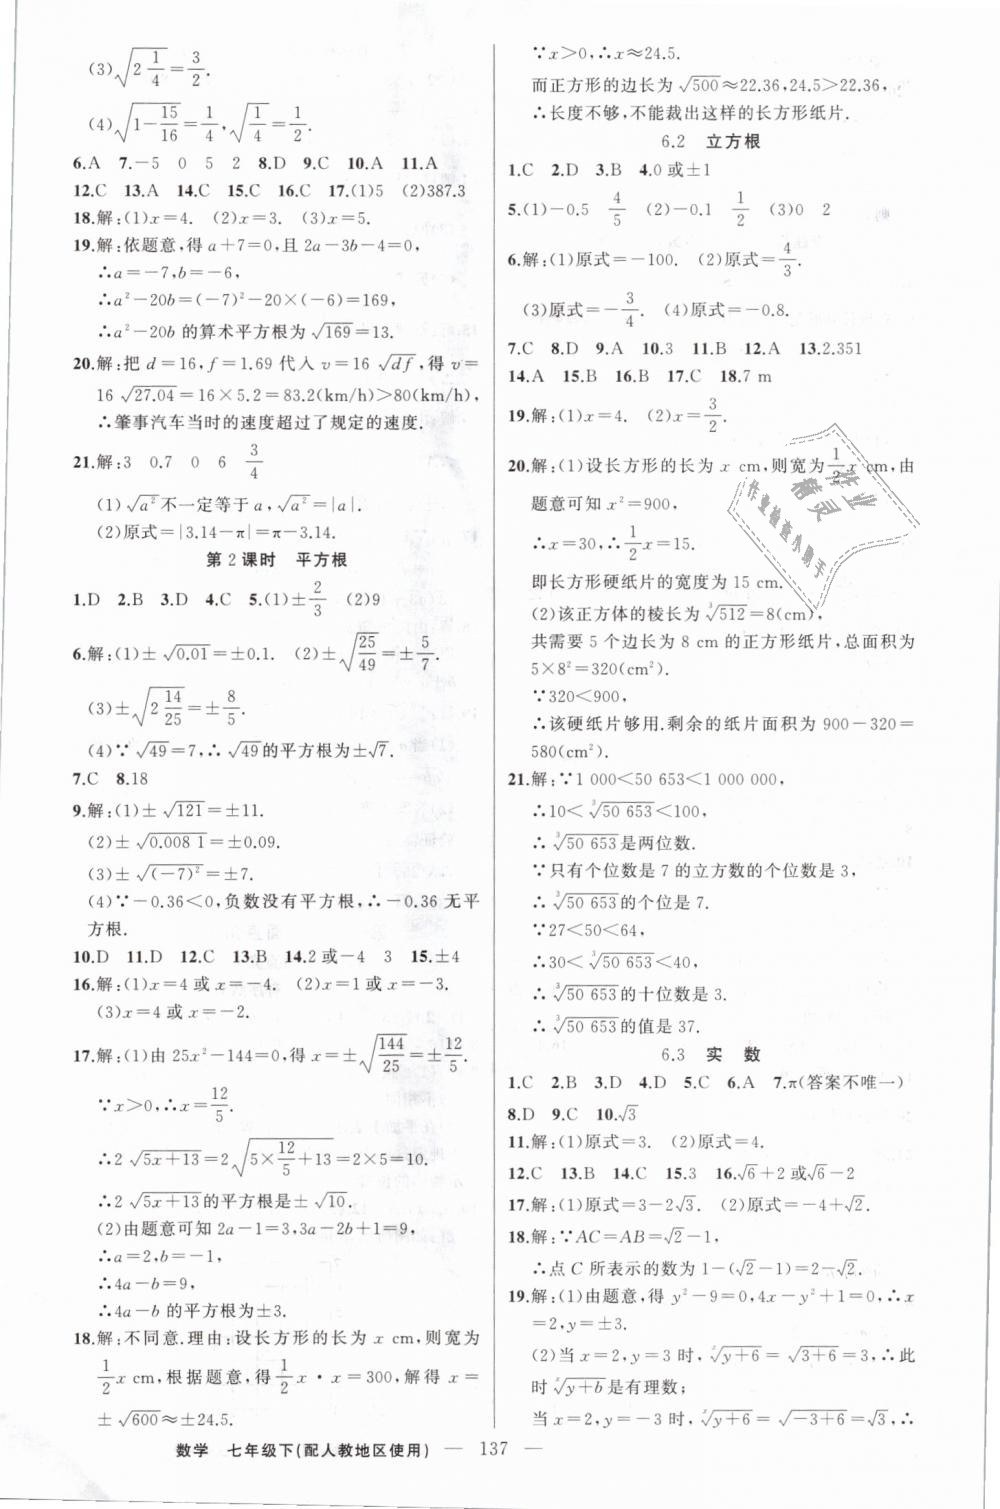 (3)√(2 1/4)=3/2.
(4)√(1-15/16)=1/4,√(1/4)=1/2.
6.A 7.-5 0 5 2 8.D 9.C 10.A 11.A
12.C 13.A 14.C 15.C 16.C 17.(1)5 (2)387.3
18.解:(1)x=4. (2)x=3. (3)x=5.
19.解:依题意,得 a+7=0,且 2a-3b-4=0,
∴a=-7,b=-6,
∴a²-20b=(-7)²-20×(-6)=169,
∴a²-20b 的算术平方根为√169=13.
20.解:把 d=16,f=1.69 代入 v=16√df,得 v=
16√27.04=16×5.2=83.2(km/h)>80(km/h),
∴肇事汽车当时的速度超过了规定的速度.
21.解:3 0.7 0 6 3/4
(1)√a²不一定等于 a,√a²=|a|.
(2)原式=|3.14-π|=π-3.14.
第 2 课时 平方根
1.D 2.B 3.D 4.C 5.(1)±2/3 (2)9
6.解:(1)±√0.01=±0.1. (2)±√(25/49)=±5/7.
(3)±√(2 14/25)=±8/5.
(4)∵√49=7,∴√49的平方根为±√7.
7.C 8.18
9.解:(1)±√121=±11.
(2)±√0.008 1=±0.09.
(3)±√(-7)²=±7.
(4)∵-0.36<0,负数没有平方根,∴-0.36 无平
方根.
10.D 11.D 12.C 13.B 14.2 或-4 3 15.±4
16.解:(1)x=4 或 x=-4. (2)x=1 或 x=-3.
(3)x=4 或 x=-2.
17.解:(1)由 25x²-144=0,得 x=±√(144/25)=±12/5.
∵x>0,∴x=12/5.
∴2√(5x+13)=2√(5×12/5+13)=2×5=10.
∴2√(5x+13)的平方根是±√10.
(2)由题意可知 2a-1=3,3a-2b+1=9,
∴a=2,b=-1,
∴4a-b=9,
∴4a-b 的平方根为±3.
18.解:不同意.理由:设长方形的长为 x cm,则宽为
1/2 x cm,根据题意,得1/2 x·x=300,解得 x=
±√600≈±24.5.
∵x>0,∴x≈24.5.
而正方形的边长为√500≈22.36,24.5>22.36,
∴长度不够,不能裁出这样的长方形纸片.
6.2 立方根
1.C 2.D 3.B 4.0 或±1
5.(1)-0.5 4/5 (2)-0.1 1/2 (3)0 2
6.解:(1)原式=-100. (2)原式=4/3.
(3)原式=-3/4. (4)原式=-0.8.
7.C 8.D 9.A 10.3 11.B 12.A 13.2.351
14.A 15.B 16.B 17.C 18.7 m
19.解:(1)x=4. (2)x=3/2.
20.解:(1)设长方形的长为 x cm,则宽为1/2 x cm,由
题意可知 x²=900,
∴x=30,∴1/2 x=15.
即长方形硬纸片的宽度为 15 cm.
(2)该正方体的棱长为∛512=8(cm),
共需要 5 个边长为 8 cm 的正方形纸片,总面积为
5×8²=320(cm²).
∵320<900,
∴该硬纸片够用.剩余的纸片面积为 900-320=
580(cm²).
21.解:∵1 000<50 653<1 000 000,
∴10<∛50 653<100,
∴∛50 653是两位数.
∵只有个位数是 7 的立方数的个位数是 3,
∴∛50 653的个位是 7.
∵27<50<64,
∴30<∛50 653<40,
∴∛50 653的十位数是 3.
∴∛50 653的值是 37.
6.3 实 数
1.C 2.B 3.D 4.D 5.C 6.A 7.π(答案不唯一)
8.D 9.C 10.√3
11.解:(1)原式=3. (2)原式=4.
12.C 13.B 14.C 15.3 16.√6+2 或√6-2
17.解:(1)原式=3-2√3. (2)原式=-4+√2.
18.解:∵AC=AB=√2-1,
∴点 C 所表示的数为 1-(√2-1)=2-√2.
19.解:(1)由题意,得 y²-9=0,4x-y²+1=0,∴x
=2,y=±3.
(2)当 x=2,y=3 时,ˣ√(y+6)=√(3+6)=3,∴此
时ˣ√(y+b)是有理数;
当 x=2,y=-3 时,ˣ√(y+6)=√(-3+6)=√3,∴
作业
精灵
作业检查小助手
数学 七年级下(配人教地区使用) — 137 —